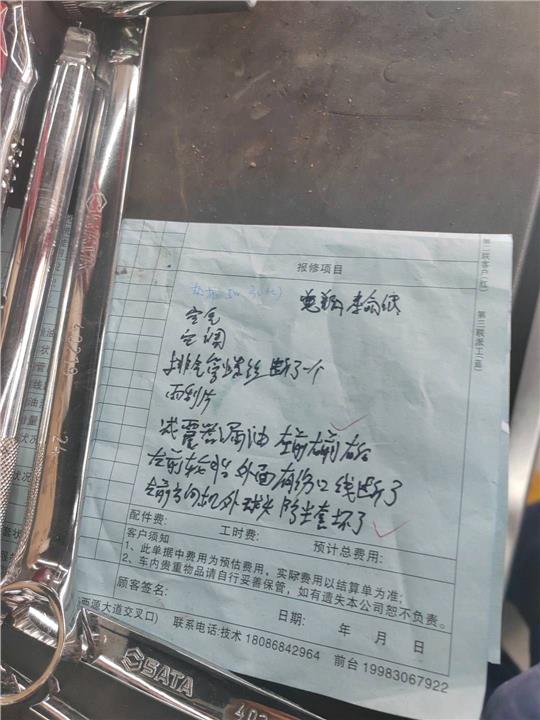 报修项目
第二联客户(红)
第三联派工(蓝)
空气
空调
排气管螺丝断了一个
雨刮片
减震器漏油 左前右前右后
左前轮胎外面有伤口线断了
方向机外球头防尘套坏了
配件费: 工时费: 预计总费用:
客户须知
1、此单据中费用为预估费用,实际费用以结算单为准;
2、车内贵重物品请自行妥善保管,如有遗失本公司恕不负责。
顾客签名: 日期: 年 月 日
西源大道交叉口) 联系电话:技术 18086842964 前台 19983067922
SATA